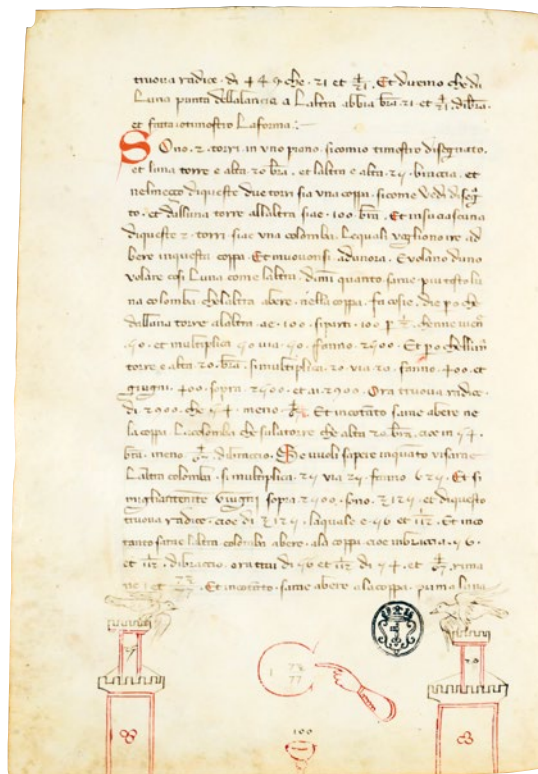 truova radice · di 4 4 9 che · 21 et 4/21 · Et diremo che di
luna punta dellalancia a laltra abbia bra 21 · et 4/21 · di bra
et fatta otimostro laforma :~
Sono · 2 · torri · in uno piano · sicomio timostro disegnato ·
et luna torre e alta · 20 bra · et laltra e alta · 25 · braccia · et
nelmecço diqueste due torri sia una coppa · sicome vedi
to · et dalluna torre allaltra siae · 100 · bra · Et insu ciascuna
diqueste 2 · torri · siae una colomba · lequali vogliono ire ad
bere inquesta coppa · Et muovonsi adunora · Evolano duno
volare cosi luna come laltra · dimi quanto sarae piu tosto lu
na colomba · chelaltra abere · nella coppa · fa cosie · che
dalluna torre alaltra · ae · 100 · siparti · 100 p 1/2 · chenne
50 · et multiplica 50 via · 50 · fanno · 2500 · Et po chelluna
torre e alta · 20 · bra · simultiplica · 20 · via · 20 · fanno · 400 · et
giugni · 400 · sopra · 2500 · et ai · 2900 · Ora truova radice ·
di · 2900 · che 54 · meno · Et incotanto sarae abere ne
la coppa · la colomba · che sulatorre che alta 20 · bra · cioe in 54 ·
bra · meno · dibraccio · Se vuoli sapere inquanto
laltra colomba · si multiplica · 25 via 25 · fanno 625 · Et si
migliantemente giugni sopra · 2500 · sono · 3125 · et diquesto
truova radice · cioe di 3125 · laquale e · 56 et · Et inco
tanto sarae laltra colomba abere · ala coppa · cioe in braccia · 56 ·
et · di braccio · ora trai di 56 et di 54 · et · rima
ne 1 et 73/77 · Et incotanto · sarae abere ala coppa · luna
25
1 73/77
20
100